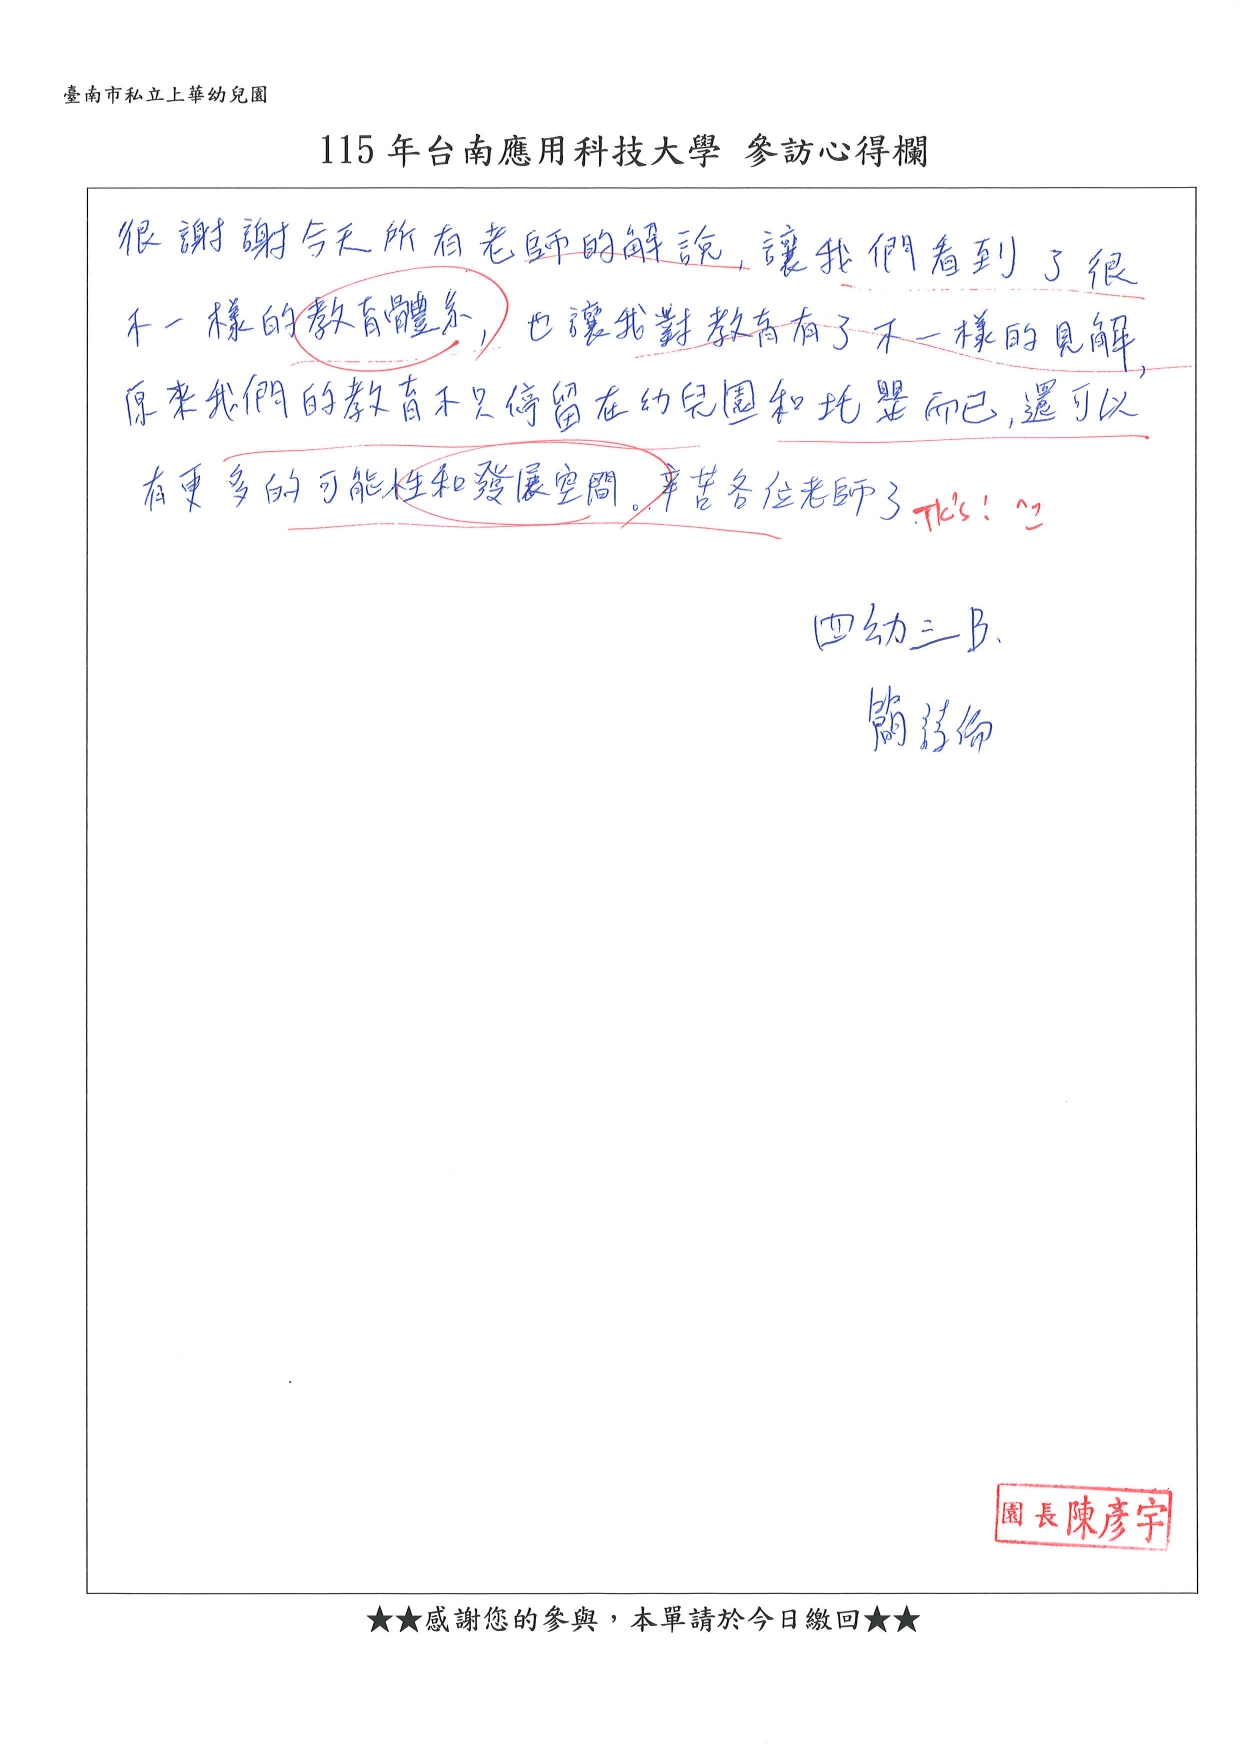 臺南市私立上華幼兒園
115 年台南應用科技大學 參訪心得欄
很謝謝今天所有老師的解說，讓我們看到了很
不一樣的教育體系，也讓我對教育有了不一樣的見解，
原來我們的教育不只停留在幼兒園和托嬰而已，還可以
有更多的可能性和發展空間。辛苦各位老師了
TK's! ^^
四幼三B.
簡詩倫
園長陳彥宇
★★感謝您的參與，本單請於今日繳回★★